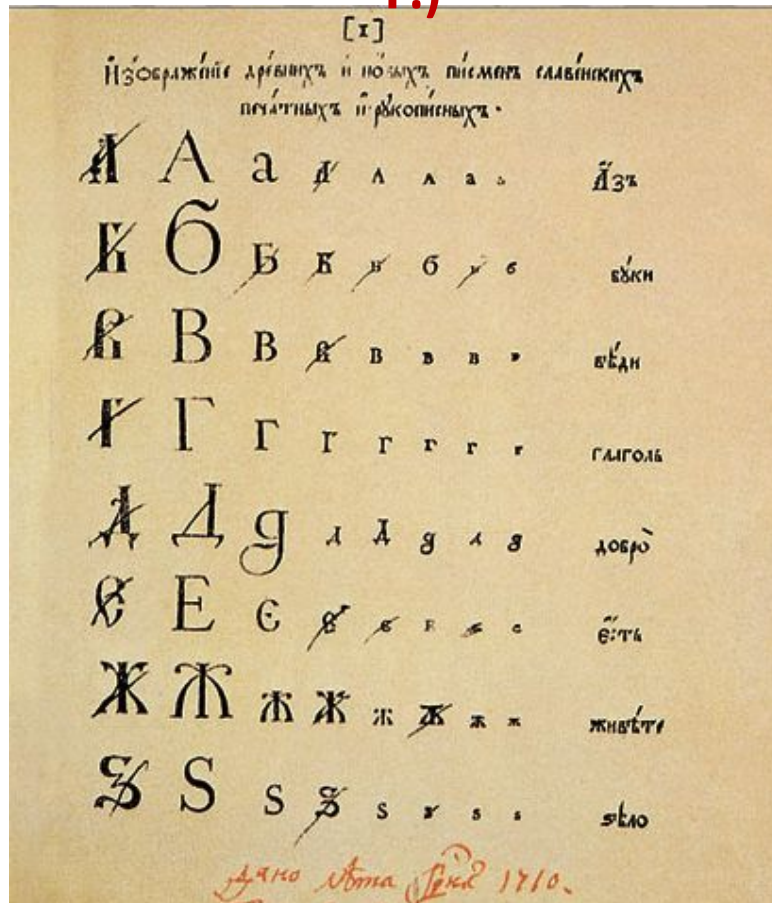 г.)
[1]
Изображе́ніе дре́внихъ и но́выхъ пи́сменъ славе́нскихъ
печа́тныхъ и рукопи́сныхъ.
А А а А А А а а А҆́зъ
Б Б Б Б Б б б б бу́ки
В В В В В В В В вѣ́ди
Г Г Г Г Г Г Г Г глаго́ль
Д Д д д Д д д д добро̀
Є Е є є є Е є є є҆́сть
Ж Ж ж Ж ж ж ж ж живѣ́те
Ѕ Ѕ ѕ Ѕ ѕ ѕ ѕ ѕ ѕѣло̀
Дано лѣта 1710.